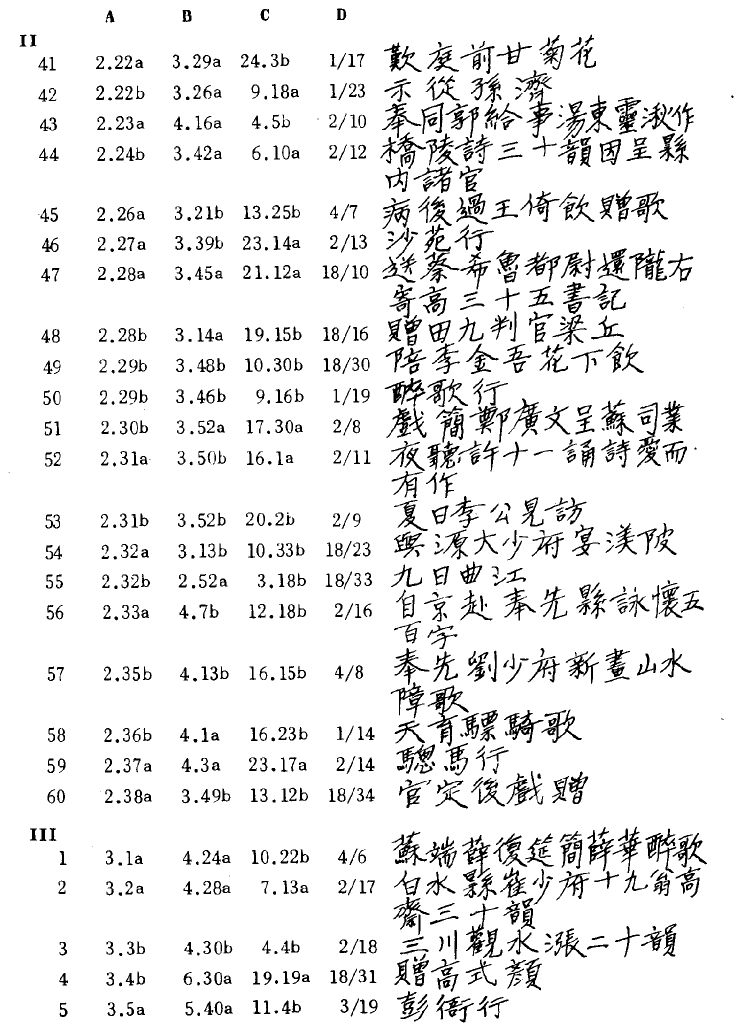 A B C D
II
41 2.22a 3.29a 24.3b 1/17 歎庭前甘菊花
42 2.22b 3.26a 9.18a 1/23 示從孫濟
43 2.23a 4.16a 4.5b 2/10 奉同郭給事湯東靈湫作
44 2.24b 3.42a 6.10a 2/12 橋陵詩三十韻因呈縣
內諸官
45 2.26a 3.21b 13.25b 4/7 病後過王倚飲贈歌
46 2.27a 3.39b 23.14a 2/13 沙苑行
47 2.28a 3.45a 21.12a 18/10 送蔡希魯都尉還隴右
寄高三十五書記
48 2.28b 3.14a 19.15b 18/16 贈田九判官梁丘
49 2.29b 3.48b 10.30b 18/30 陪李金吾花下飲
50 2.29b 3.46b 9.16b 1/19 醉歌行
51 2.30b 3.52a 17.30a 2/8 戲簡鄭廣文呈蘇司業
52 2.31a 3.50b 16.1a 2/11 夜聽許十一誦詩愛而
有作
53 2.31b 3.52b 20.2b 2/9 夏日李公見訪
54 2.32a 3.13b 10.33b 18/23 與源大少府宴渼陂
55 2.32b 2.52a 3.18b 18/33 九日曲江
56 2.33a 4.7b 12.18b 2/16 自京赴奉先縣詠懷五
百字
57 2.35b 4.13b 16.15b 4/8 奉先劉少府新畫山水
障歌
58 2.36b 4.1a 16.23b 1/14 天育驃騎歌
59 2.37a 4.3a 23.17a 2/14 驄馬行
60 2.38a 3.49b 13.12b 18/34 官定後戲贈
III
1 3.1a 4.24a 10.22b 4/6 蘇端薛復筵簡薛華醉歌
2 3.2a 4.28a 7.13a 2/17 白水縣崔少府十九翁高
齋三十韻
3 3.3b 4.30b 4.4b 2/18 三川觀水漲二十韻
4 3.4b 6.30a 19.19a 18/31 贈高式顏
5 3.5a 5.40a 11.4b 3/19 彭衙行